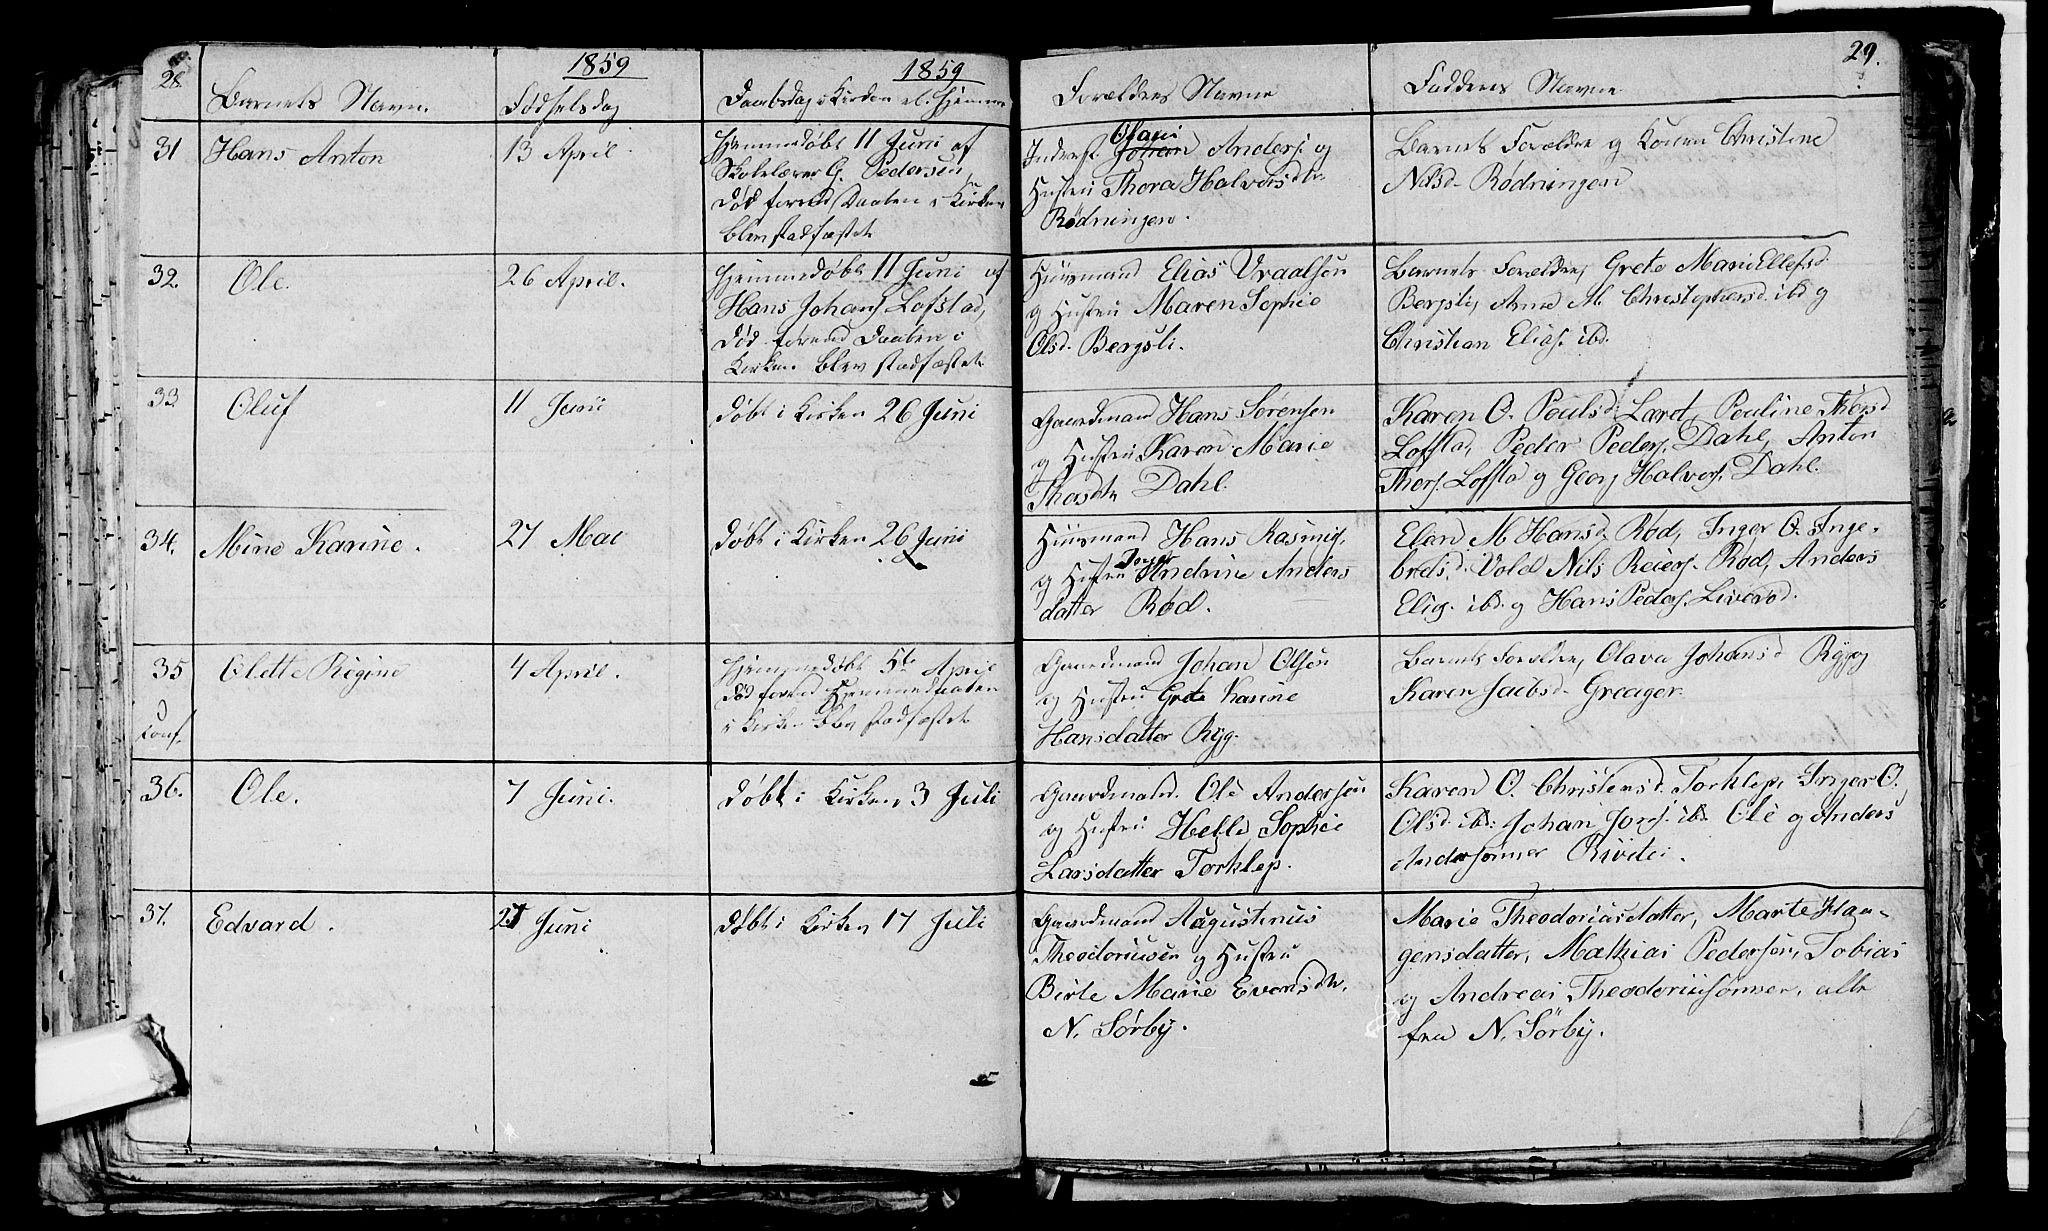 28.
1859
1859
29.
Barnets Navn.
Fødselsdag
Daabsdag i Kirken el. Hjemme
Forældres Navne
Fadderes Navne
31
Hans Anton
13 April.
Hjemmedøbt 11 Juni af
Skolelærer G. Pedersen,
død forend Daaben i Kirken
blev stadfæstet
Inderst. Johan Olaui Anders. og
Hustru Thora Halvorsdtr
Rødningen.
Barnets Forældre og Konen Christine
Nilsd. Rødningen
32.
Ole.
26 April.
Hjemmedøbt 11 Juni af
Hans Johans. Lofstad,
død forend Daaben i
Kirken blev stadfæstet
Huusmand Elias Vraalsen
og Hustru Maren Sophie
Olsd. Bergsli.
Barnets Forældre, Grete Marie Ellefsd.
Bergsli, Anne M. Christophersd. ibd og
Christian Elias. ibd.
33.
Oluf
11 Juni
døbt i Kirken 26 Juni
Gaardmand Hans Sørensen
og Hustru Karen Marie
Thorsdtr Dahl.
Karen O. Poulsd. Pauline Thorsd
Loffsta, Peder Peders. Dahl, Anton
Thors. Loffsta og Georg Halvors. Dahl.
34.
Mine Karine.
27 Mai
døbt i Kirken 26 Juni
Huusmand Hans Rasmus.
og Hustru Andrine Anders
datter Rød.
M Hansd. Rød, Inger O. Inge-
bretsd. Vold Nils Reiers. Rød, Anders
Elias. ibd. og Hans Peders. Liverød.
35
Conf.
Olette Regine
4 April.
Hjemmedøbt 5te April
død forend Hjemmedaaben
i Kirken blev stadfæstet
Gaardmand Johan Olsen
og Hustru Grete Karine
Hansdatter Ryg.
Barnets Forældre, Olava Johansd. Ryg og
Karen Jacobsd. Greager.
36.
Ole.
7 Juni.
døbt i Kirken 3 Juli
Gaardmand. Ole Andersen
og Hustru Helle Sophie
Larsdatter Torklep.
Karen O. Christensd. Torklep, Inger O.
Olsd. ibd: Johan ibd Ole og Anders
Andersønner
37.
Edvard.
21 Juni
døbt i Kirken 17 Juli
Gaardmand Augustinus
Theodoriusen og Hustru
Birte Marie Evensdtr.
N. Sørby.
Marie Theodoriusdatter, Marte Haa-
gensdatter, Mathias Pedersen, Tobias
og Andreas Theodoriusønner, alle
fra N. Sørby.